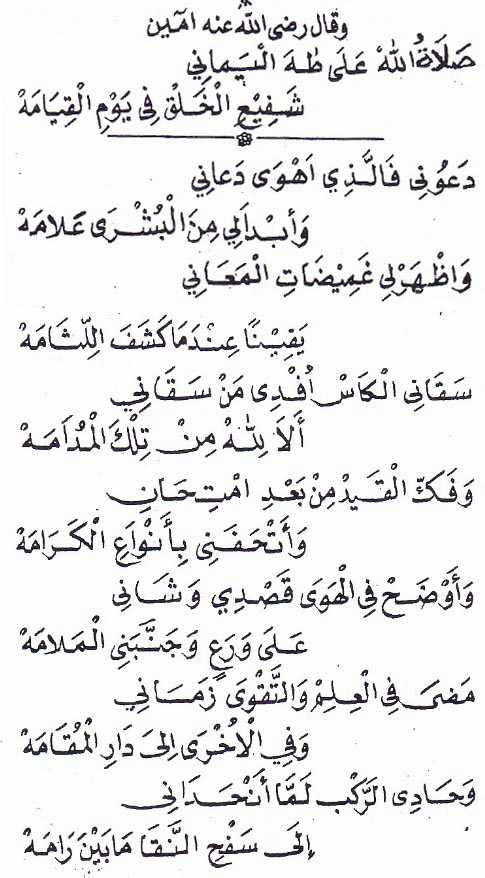 وقال رضى الله عنه امين
صَلَاةُ اللهْ عَلَى طٰهَ الْيَمانِي
شَفِيْعِ الْخَلْقِ فِي يَوْمِ الْقِيَامَهْ
دَعُونِى فَالَّذِي اَهْوَى دَعانِي
وَأَبْدَالِي مِنَ الْبُشْرَى عَلامَهْ
وَاظْهَرْلِي غَمِيْضَاتِ الْمَعَانِي
يَقِيْنًا عِنْدَمَا كَشَفَ اللِّثَامَهْ
سَقَانِى الْكَاسْ اُفْدِى مَنْ سَقَانِي
أَلاَ لِلّٰهْ مِنْ تِلْكَ الْمُدَامَهْ
وَفَكّ الْقَيدْ مِنْ بَعْدِ امْتِحَانِ
وَأَتْحَفَنِى بِأَنْوَاعِ الْكَرَامَهْ
وَأَوْضَحْ فِى الْهَوَى قَصْدِي وَشَانِى
عَلَى وَرَعٍ وَجَنَّبَنِى الْمَلامَهْ
مَضَى فِى الْعِلِمْ وَالتَّقْوَى زَمَانِي
وَفِي الْاُخْرَى اِلَى دَارِ الْمُقَامَهْ
وَحَادِى الرَّكْبِ لَمَّا أَنْحَدَانِى
إِلَى سَفْحِ النَّقَا مَابَيْنَ رَامَهْ